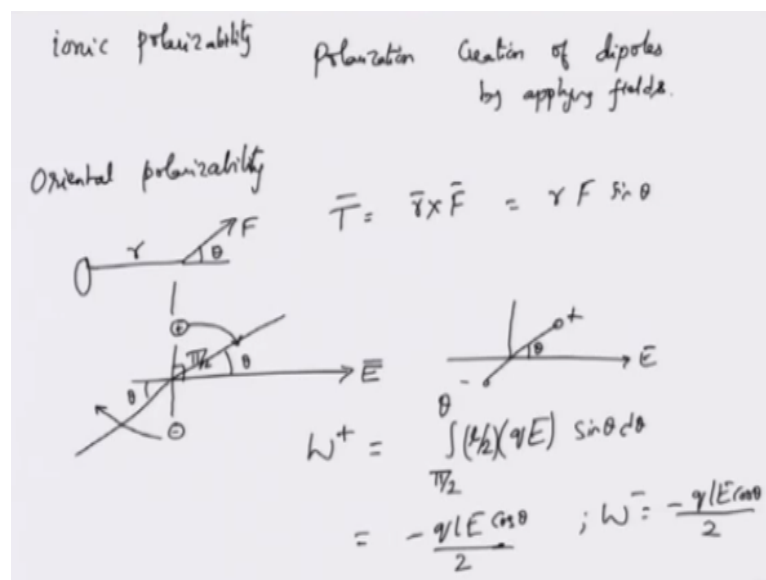 ionic polarizability
Polarization Creation of dipoles
by applying fields.
Oriental polarizability
T̄ = r̄ x F̄ = r F sin θ
r F θ
+ π/2 θ Ē
θ -
+ θ Ē
-
W⁺ = ∫_{π/2}^{θ} (l/2)(qE) sinθ dθ
= - qlE cosθ / 2 ; W⁻ = - qlE cosθ / 2